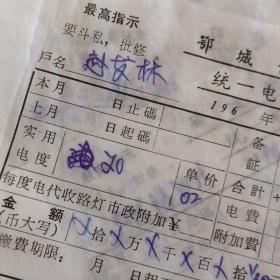 最高指示
要斗私，批修
鄂城
户名
统一电
196 年
本月 日止碼
上月 日起碼
备
註
实用
电度 20
单价
02
合計
每度电代收路灯市政附加￥
电費
金额
(币大写) 拾 万 千 百 拾
附加費
繳費期限： 月 日起